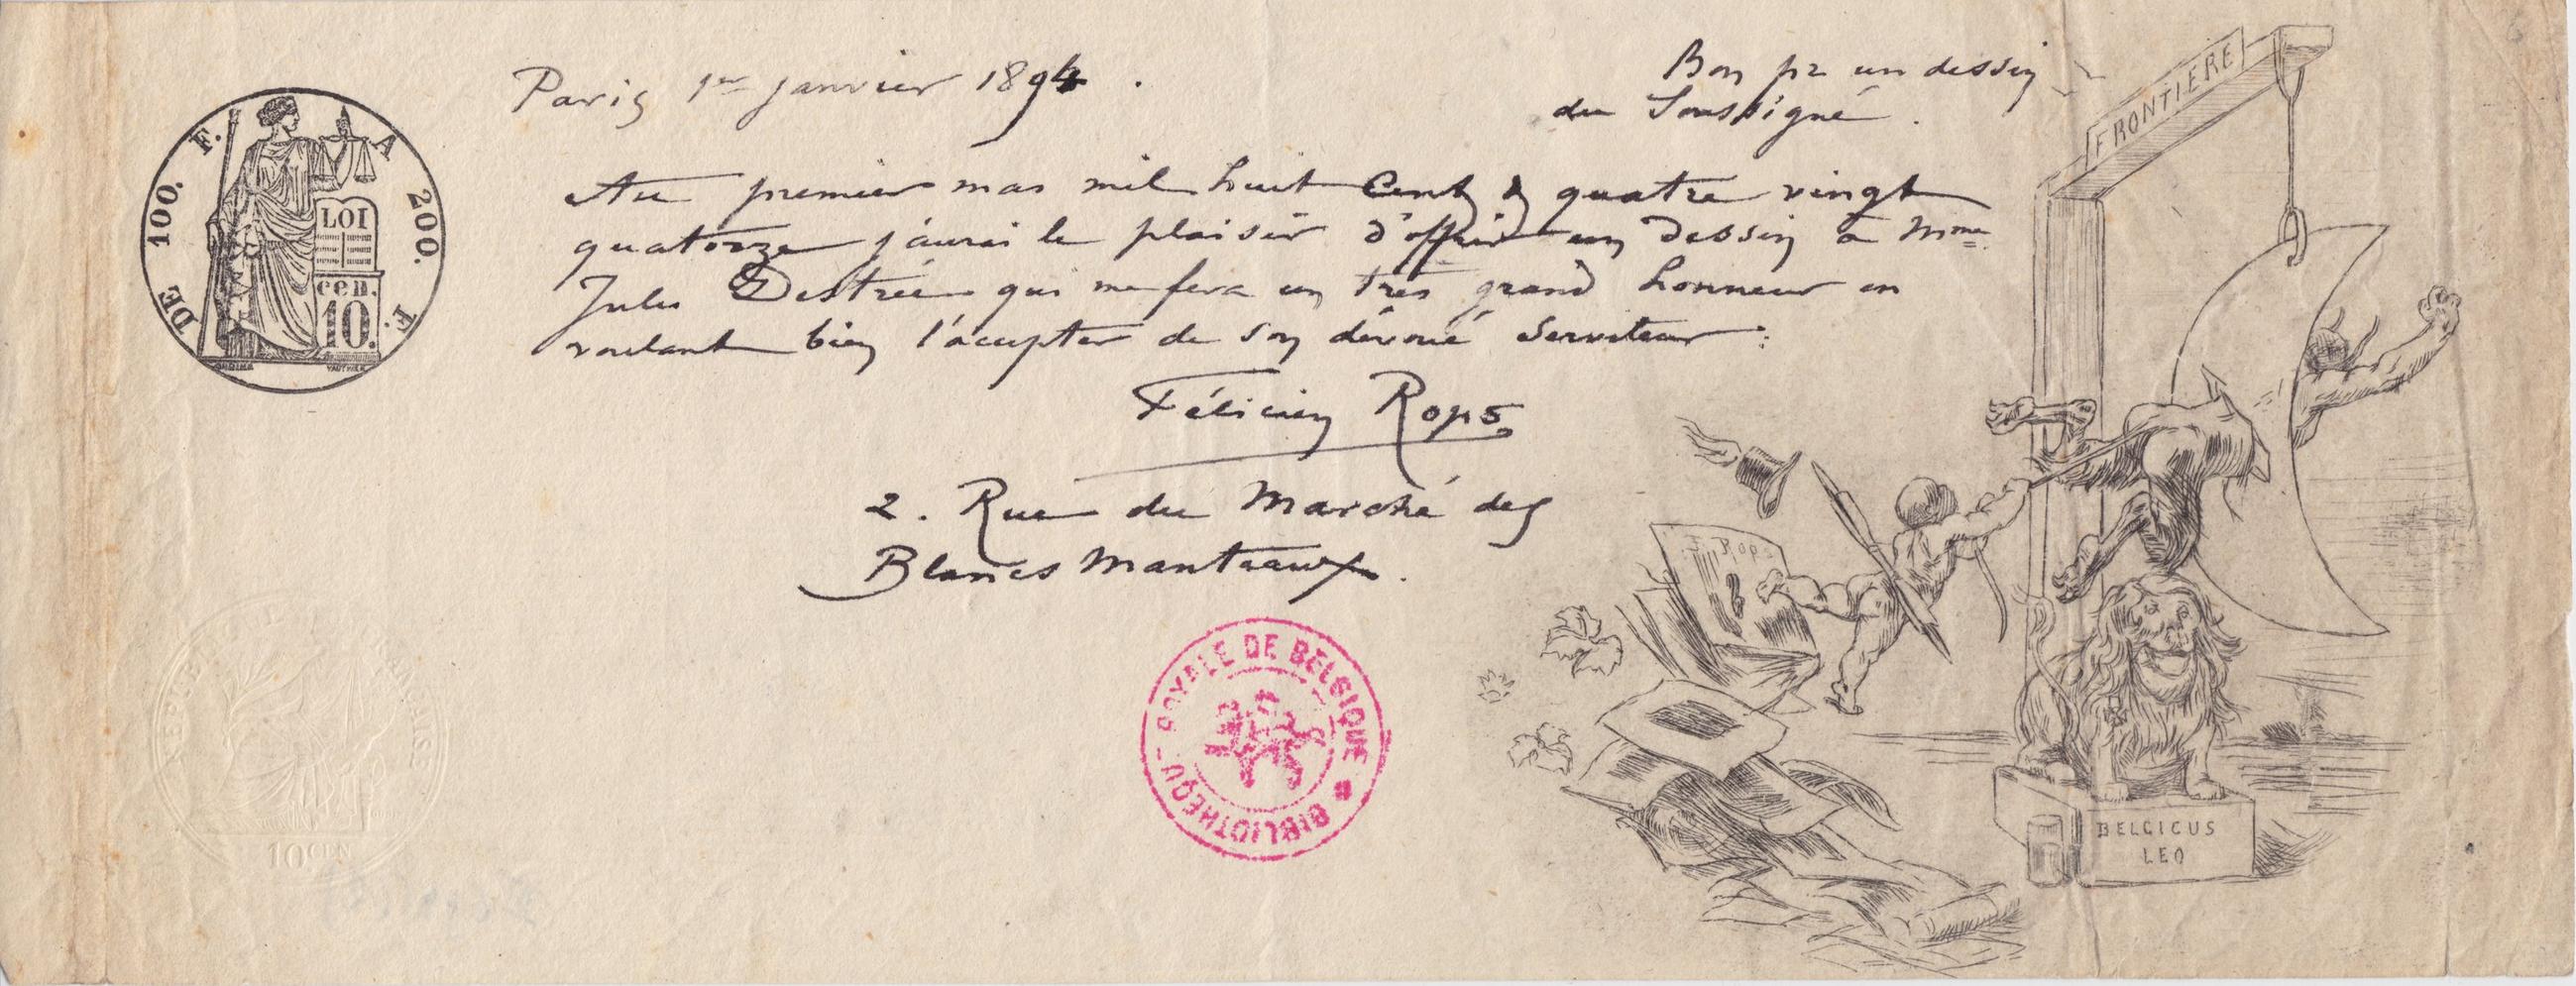 DE 100. F. A 200. F.
LOI
cen.
10.
Paris 1er janvier 1894.
Bon pr un dessin
du Soussigné.
Au premier mars mil huit Cent & quatre vingt
quatorze j'aurai le plaisir d'offrir un dessin à Mme
Jules Destrée qui me fera un très grand honneur en
voulant bien l'accepter de son dévoué Serviteur :
Félicien Rops
2. Rue du Marché des
Blancs Manteaux.
RÉPUBLIQUE FRANÇAISE
10 CEN
BIBLIOTHEQU - ROYALE DE BELGIQUE
FRONTIÈRE
F. Rops
BELGICUS
LEO